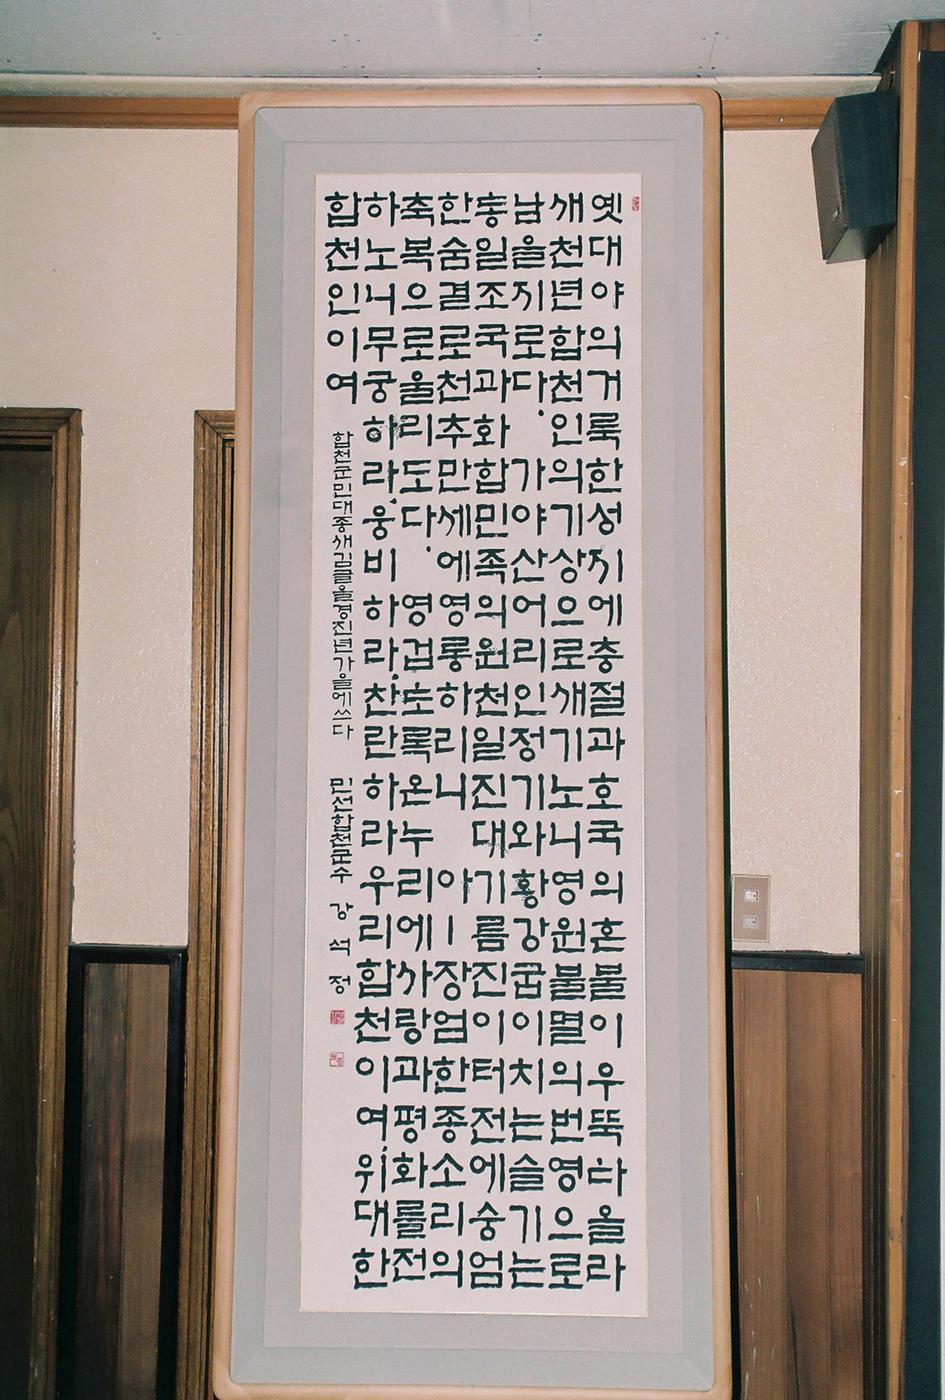 옛대야의거룩한성지에충절과호국의혼불이우뚝타올라
새천년합천인의기상으로새기노니영원불멸의번영으로
남을지로다. 가야산어리인정기와황강굽이치는슬기는
통일조국과화합민족의원천일진대기름진이터전에숭엄
한숨결로천추만세에영롱하리니 아ㅣ장엄한종소리의
축복으로울리도다. 영겁도록온누리에사랑과평화를전
하노니무궁하라.웅비하라.찬란하라우리합천이여.위대한
합천인이여
합천군민대종새김글을경진년가을에쓰다 민선합천군수 강석정